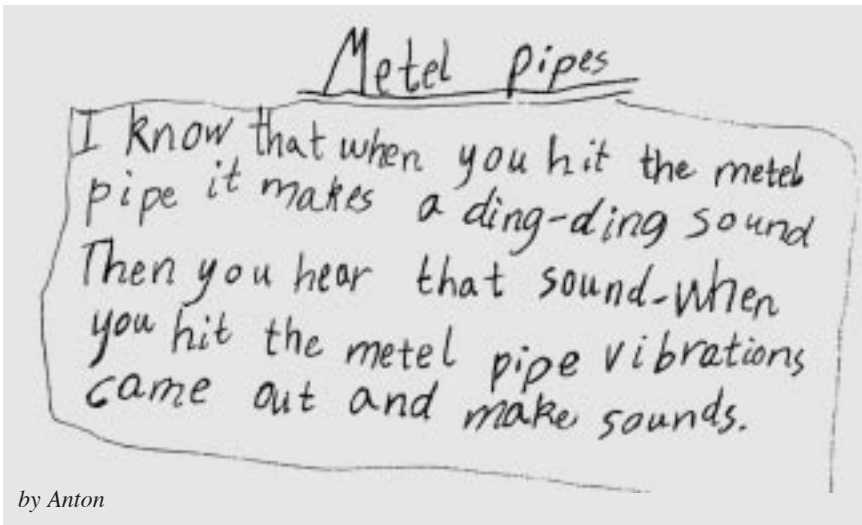 Metel pipes
I know that when you hit the metel
pipe it makes a ding-ding sound
Then you hear that sound-when
you hit the metel pipe vibrations
came out and make sounds.
by Anton